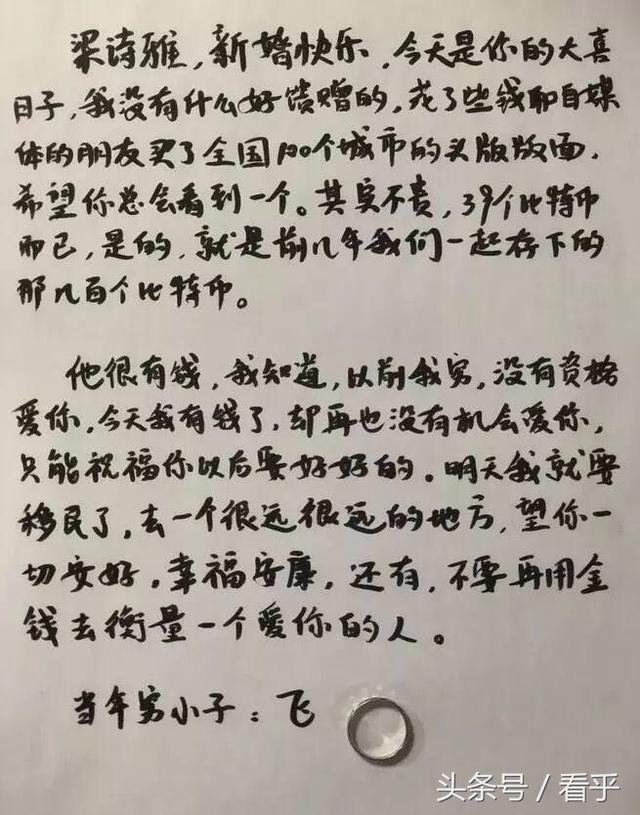 梁诗雅，新婚快乐，今天是你的大喜
日子，我没有什么好馈赠的，花了些钱和自媒
体的朋友买了全国100个城市的头版版面，
希望你总会看到一个。其实不贵，39个比特币
而已，是的，就是前几年我们一起存下的
那几百个比特币。
他很有钱，我知道，以前我穷，没有资格
爱你，今天我有钱了，却再也没有机会爱你，
只能祝福你以后要好好的。明天我就要
移民了，去一个很远很远的地方，望你一
切安好，幸福安康，还有，不要再用金
钱去衡量一个爱你的人。
当年穷小子：飞
头条号 / 看乎